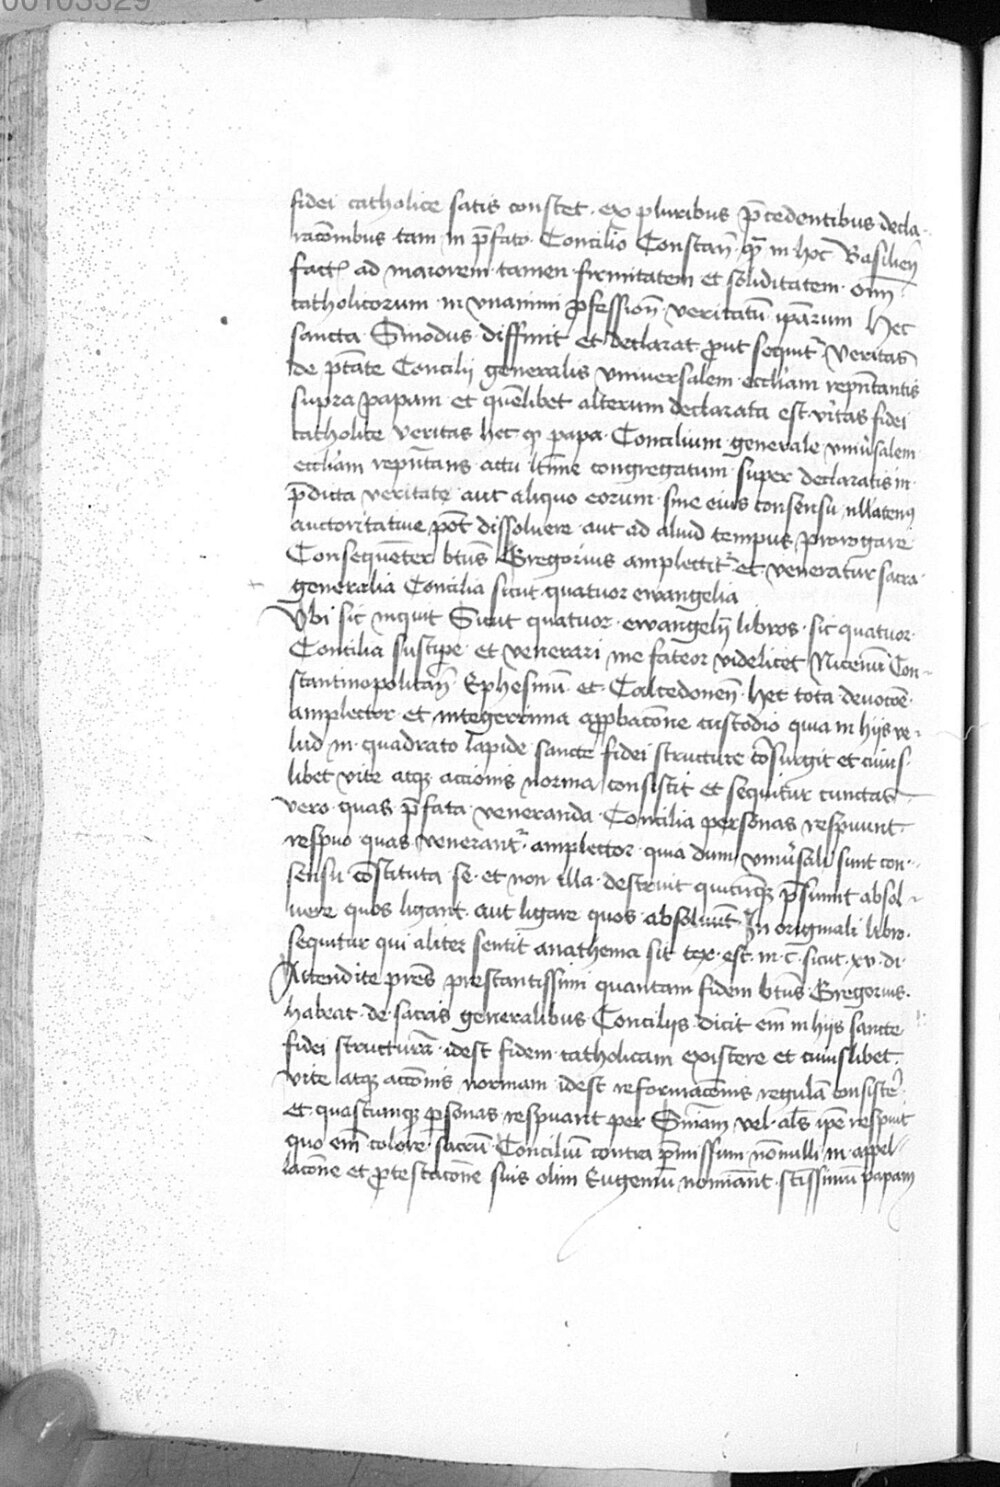 00103329
fidei catholice satis constet · ex pluribus p̄cedentibus decla-
racōnibus tam in p̄fato Concilio Constan̄ · qꝫ in hoc Basilien̄
fact̄ ad maiorem tamen firmitatem et soliditatem · oīm
catholicorum in vnanimi ꝓfession̄ veritatū ip̄arum Hec
sancta Sinodus diffinit et declarat ꝓut sequit᷑ Veritas
de ptāte Concilij generalis vniuersalem eccliam rep̄ntantis
supra papam et quēlibet alterum declarata est v̄itas fidei
catholice Veritas hec ꝙ papa Concilium generale vniu̓salem
eccliam rep̄ntans actu ltīme congregatum super declaratis in
p̄dicta veritate aut aliquo eorum sine eius consensu nllatenꝰ
auctoritatiue pōt dissoluere aut ad aliud tempus prorogare
Consequēter btūs Gregorius amplectit᷑ et veneratur sacra
generalia Concilia sicut quatuor ewangelia
Vbi sic inquit Sicut quatuor ewangelij libros · sic quatuor
Concilia suscipe et venerari me fateor videlicet Nicenū Con-
stantinopolitan̄ Ephesinū et Calcedonen̄ hec tota deuocōe
amplector et integerrima approbacōne custodio quia in hijs ve-
lud in quadrato lapide sancte fidei structure cōsurgit et cuius-
libet vite atqꝫ accionis norma consistit et sequitur cunctas
vero quas p̄fata veneranda Concilia personas respuunt
respuo quas venerant᷑ amplector quia dum vniu̓sali sunt con-
sensu cōstituta se et non illa destruit quicūqꝫ p̄sumit absol-
uere quos ligant aut ligare quos absoluūt In originali libro
sequitur qui aliter sentit anathema sit tex est in c̄ sicut xv di
Attendite pr̄es prestantissimi quantam fidem btūs Gregorius
habeat de sacris generalibus Concilijs dicit em̄ in hijs sancte
fidei structurā idest fidem catholicam existere et cuiuslibet
vite atqꝫ accōnis normam idest reformacōnis regulā consiste᷑
et quascumqꝫ personas respuant per Sn̄iam vel al̄s ip̄e respuit
quo em̄ colore sacrū Conciliū contra p̄missum nōnulli in appel-
lacōne et ꝓtestacōne suis olim Eugeniū nominant sc̄issimū papam